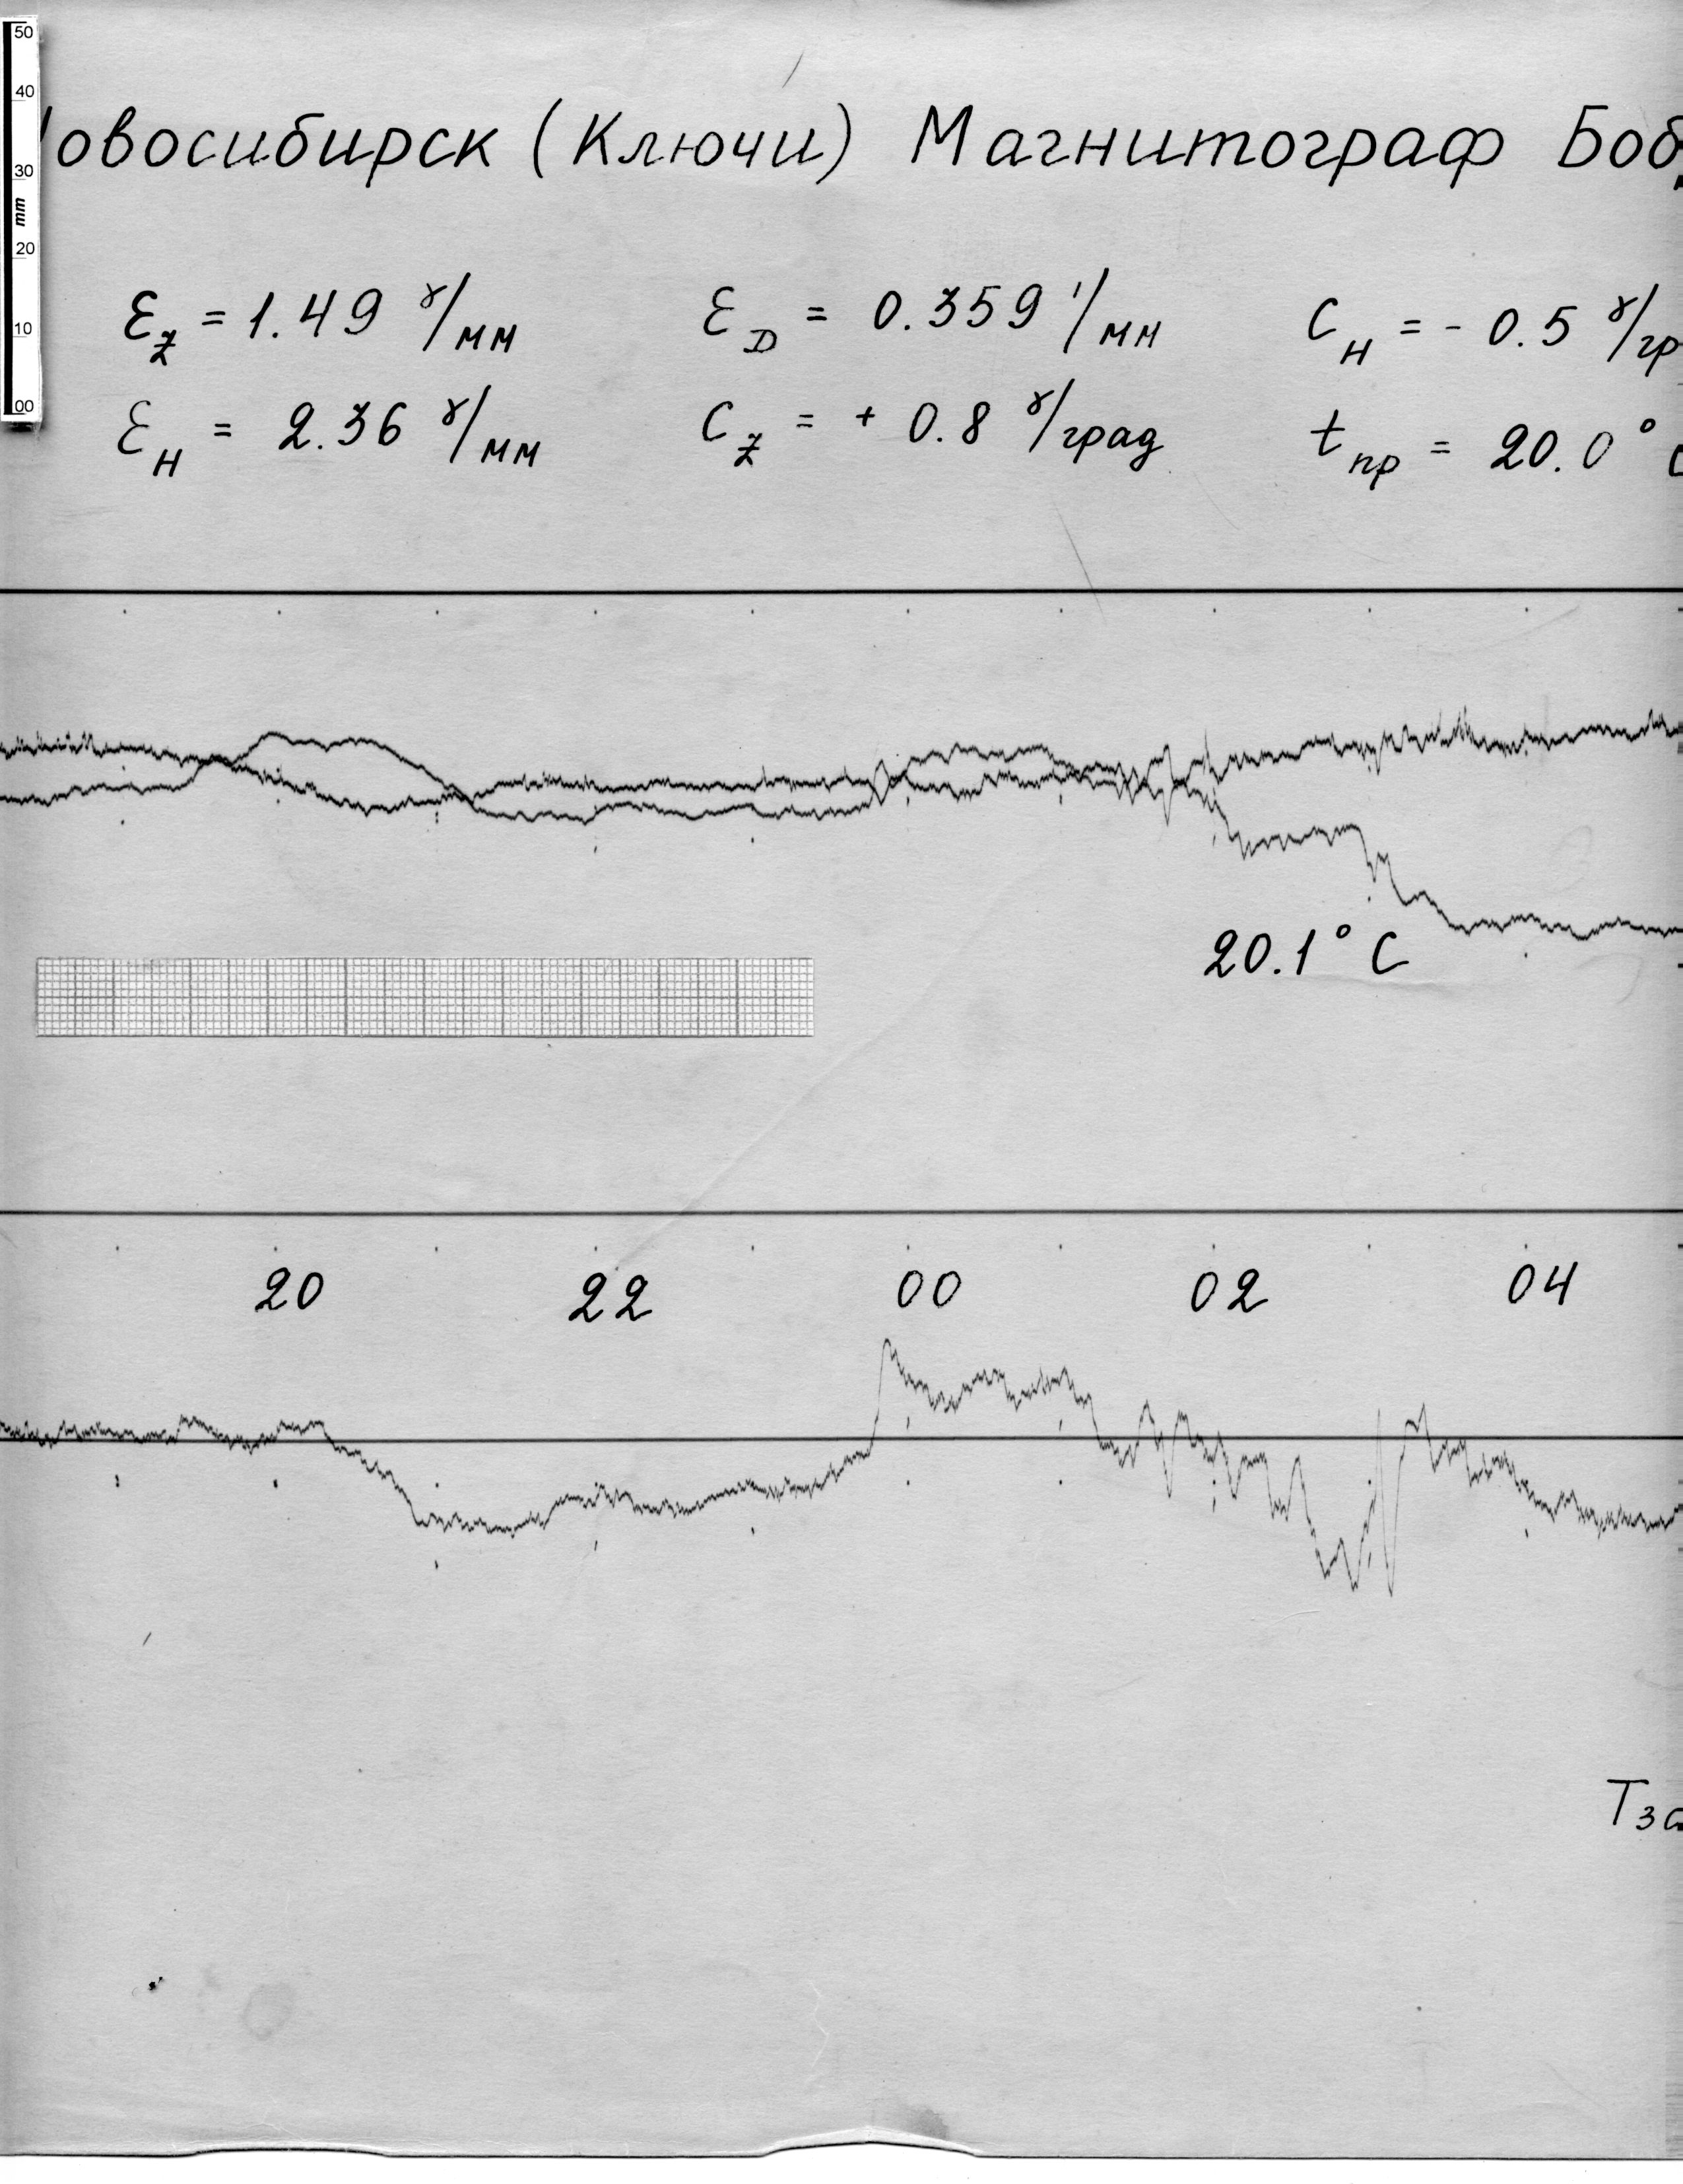 50
40
30
mm
20
10
00
овосибирск (Ключи) Магнитограф Боб
Ɛz = 1.49 γ/мм ƐD = 0.359 '/мм CH = - 0.5 γ/гр
ƐH = 2.36 γ/мм Cz = + 0.8 γ/град tпр = 20.0° C
20.1° C
20 22 00 02 04
Tза